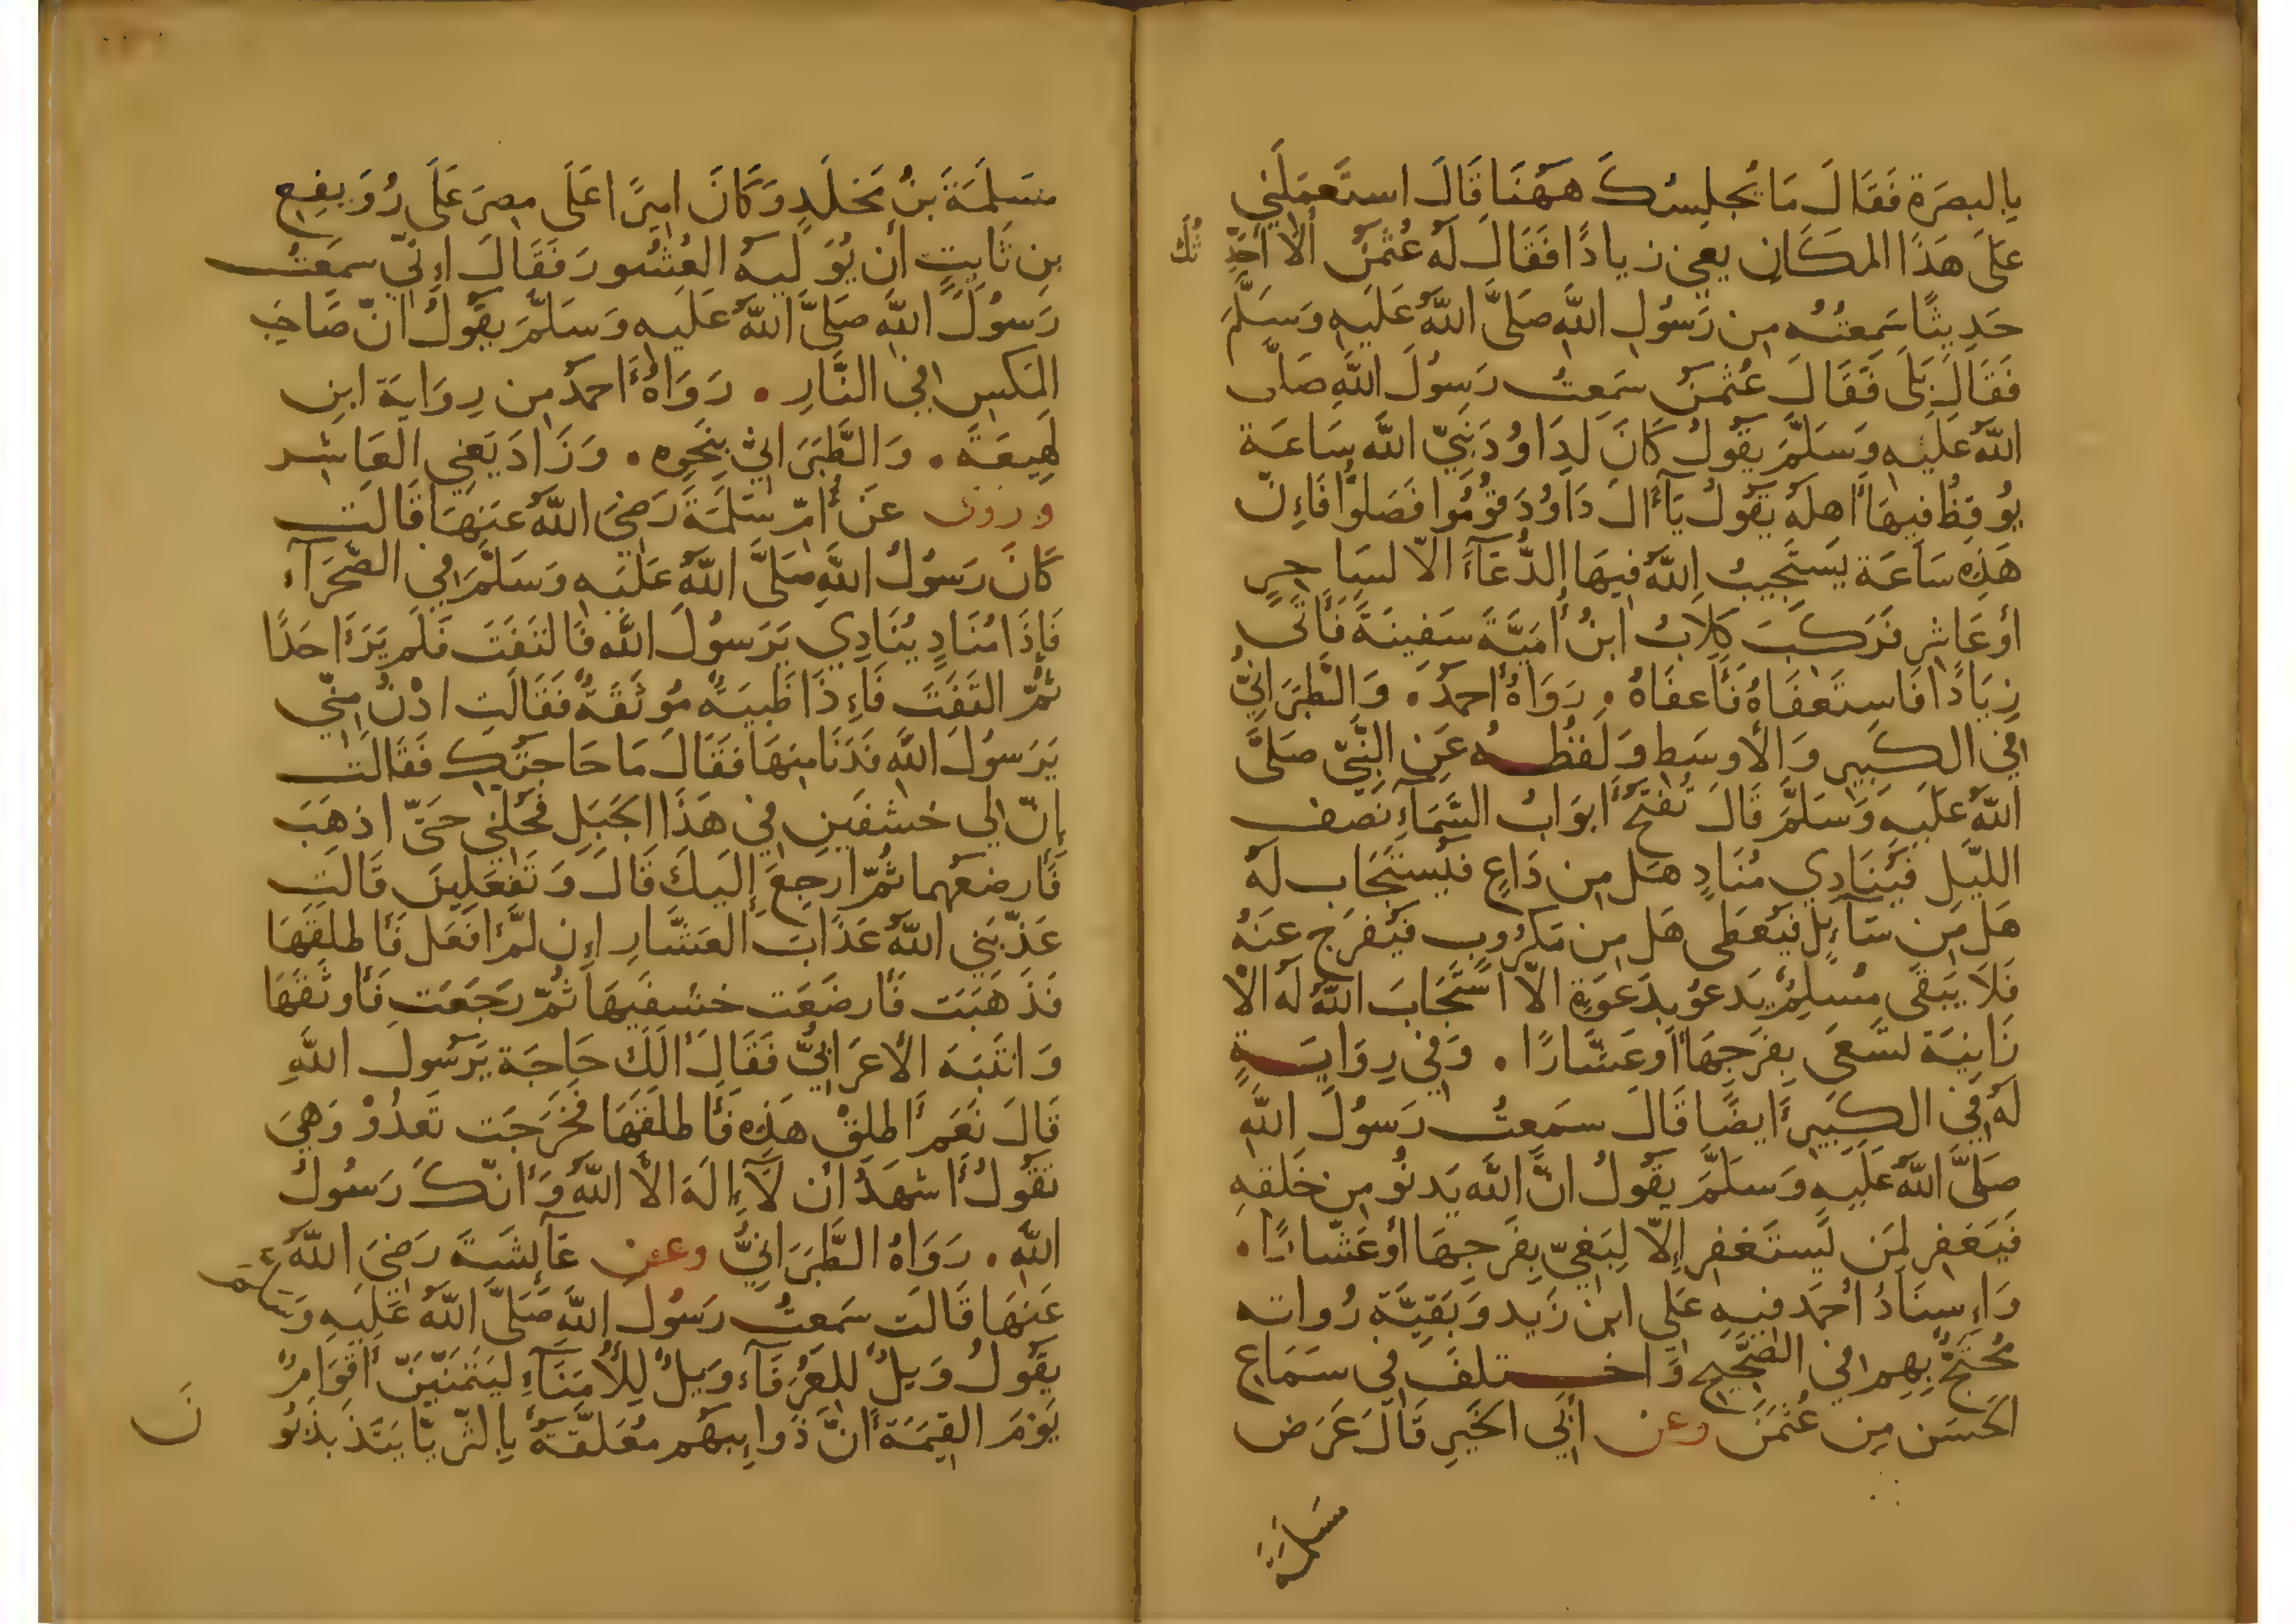 بِالبصَرَةِ فَقَالَ مَا يُجلِسُكَ هٰهُنَا قَالَ استَعمَلَنِي
عَلَى هَذَا المكَانِ يعني زيادًا فَقَالَ لَهُ عُثمٰنُ أَلَا أُحَدِ
ثُكَ
حَدِيثًا سَمِعتُهُ مِن رَسُولِ اللَّهِ صَلَّى اللَّهُ عَلَيهِ وَسَلَّمَ
فَقَالَ بَلَى فَقَالَ عُثمٰنُ سَمِعتُ رَسُولَ اللَّهِ صَلَّى
اللَّهُ عَلَيهِ وَسَلَّمَ يَقُولُ كَانَ لِدَاوُدَ نَبِيِّ اللَّهِ سَاعَة
يُوقِظُ فِيهَا أَهلَهُ يَقُولُ يَآ أَلَ دَاوُدَ قُومُوا فَصَلُّوا فَإِنَّ
هَذِهِ سَاعَة يَستَجِيبُ اللَّهُ فِيهَا الدُّعَآءَ الّا لسَاحِرٍ
أو عَاشِرٍ فَرَكَبَ كِلابُ ابنُ أُمَيَّةَ سَفِينَةً فَأَتَى
زِيَادًا فَاستَعفَاهُ فَأَعفَاهُ . رَوَاهُ أَحمَدُ . وَالطَّبَرَانِيُّ
فِي الكَبِيرِ وَالأوسَطِ وَلَفظُهُ عَنِ النَّبِيِّ صَلَّى
اللَّهُ عَلَيهِ وَسَلَّمَ قَالَ تُفتَحُ أَبوَابُ السَّمَآءِ نَصف
الليلِ فَيُنَادِي مُنَادٍ هَل مِن دَاعٍ فَيُستَجَاب لَهُ
هَل مِن سَآئِلٍ فَيُعطَى هَل مِن مَكرُوبٍ فَيُفرَج عَنهُ
فَلَا يَبقَى مُسلِمٌ يَدعُو بِدَعوَةٍ الّا استَجَابَ اللَّهُ لَهُ الّا
زَانِيَة تَسعَى بِفَرجِهَا أَو عَشَّارًا . وَفي رِوَايَةٍ
لَهُ فِي الكَبِيرِ أَيضًا قَالَ سَمِعتُ رَسُولَ اللَّهِ
صَلَّى اللَّهُ عَلَيهِ وَسَلَّمَ يَقُولُ انَّ اللَّهَ يَدنُو مِن خَلقِهِ
فَيَغفِر لِمَن يَستَغفِر إِلّا لِبَغِيّ بِفَرجِهَا أَو عَشّارًا .
وَإِسنَادُ أَحمَد فِيهِ عَلِي ابن زَيد وَبَقِيَّة رُواته
مُحتَجٌّ بِهِم فِي الصَّحِيحِ وَاختلفَ فِي سَمَاعِ
الحَسَنِ مِن عُثمٰنَ وعن أَبِي الخَيرِ قَالَ عَرَضَ
سَلمَةُ
مَسلَمَةَ بنُ مَخلَدٍ وَكَانَ امِيرًا عَلَى مِصرَ عَلَى رُوَيفِعِ
بنِ ثَابِتٍ أَن يُوَلِّيهُ العُشُورَ فَقَالَ إِنِّي سَمِعتُ
رَسُولَ اللَّهِ صَلَّى اللَّهُ عَلَيهِ وَسَلَّمَ يَقُولُ انّ صَاحِبَ
المَكسِ فِي النَّارِ . رَوَاهُ أَحمَدُ مِن رِوَايَة ابنِ
لَهِيعَةَ . وَالطَّبَرَانِيّ بِنَحوِه . وَزَادَ يَعنِي العَاشِر
وروى عَن أُمِّ سَلَمَةَ رَضِيَ اللَّهُ عَنهَا قَالَت
كَانَ رَسُولُ اللَّهِ صَلَّى اللَّهُ عَلَيهِ وَسَلَّمَ فِي الصَّحرَآءِ
فَإِذَا مُنَادٍ يُنَادِي يَرَسُولَ اللَّهِ فَالتَفَتَ فَلَم يَرَ أَحَدًا
ثُمّ التَفَتَ فَإِذَا ظَبيَةٌ مُوثَقَةٌ فَقَالَت ادْنُ مِنّي
يَرَسُولَ اللَّهِ فَدَنَا مِنهَا فَقَالَ مَا حَاجَتُكِ فَقَالَت
إِنّ لِي خشفَينِ فِي هَذَا الجَبَلِ فَحُلَّنِي حَتّى اذهَبَ
فَأُرضعَهُما ثُمّ ارجِعَ إِلَيكَ قَالَ وَتَفعَلِينَ قَالَت
عَذّبَنِي اللَّهُ عَذَابَ العَشَّارِ إِن لَم أَفعَل فَأَطلَقَهَا
فَذَهَبَت فَأَرضَعَت خشفَيهَا ثُمّ رَجَعَت فَأَوثَقَهَا
وَانتَبَهَ الأعرَابِيُّ فَقَالَ أَلَكَ حَاجَة يَرَسُولَ اللَّهِ
قَالَ نَعَم أَطلِقْ هَذِهِ فَأَطلَقَهَا فَخَرَجَت تَعدُوْ وَهِيَ
تَقُولُ أَشهَدُ أن لَآ إِلَهَ الّا اللَّهُ وَأَنّكَ رَسُولُ
اللَّهِ . رَوَاهُ الطَّبَرَانِيُّ وعن عَآئِشَةَ رَضِيَ اللَّهُ
عَنهَا قَالَت سَمِعتُ رَسُولَ اللَّهِ صَلَّى اللَّهُ عَلَيهِ وَسَلَّمَ
يَقُولُ وَيلٌ لِلعُرَفَآءِ وَيلٌ لِلأُمَنَآءِ لَيَتَمَنَّيَنّ أَقوَامٌ
يَومَ القِيٰمَةِ أَنَّ ذَوايِبَهُم مُعَلَّقَةٌ بِالثّرَيَّا يَتَذَبذَبُو
نَ